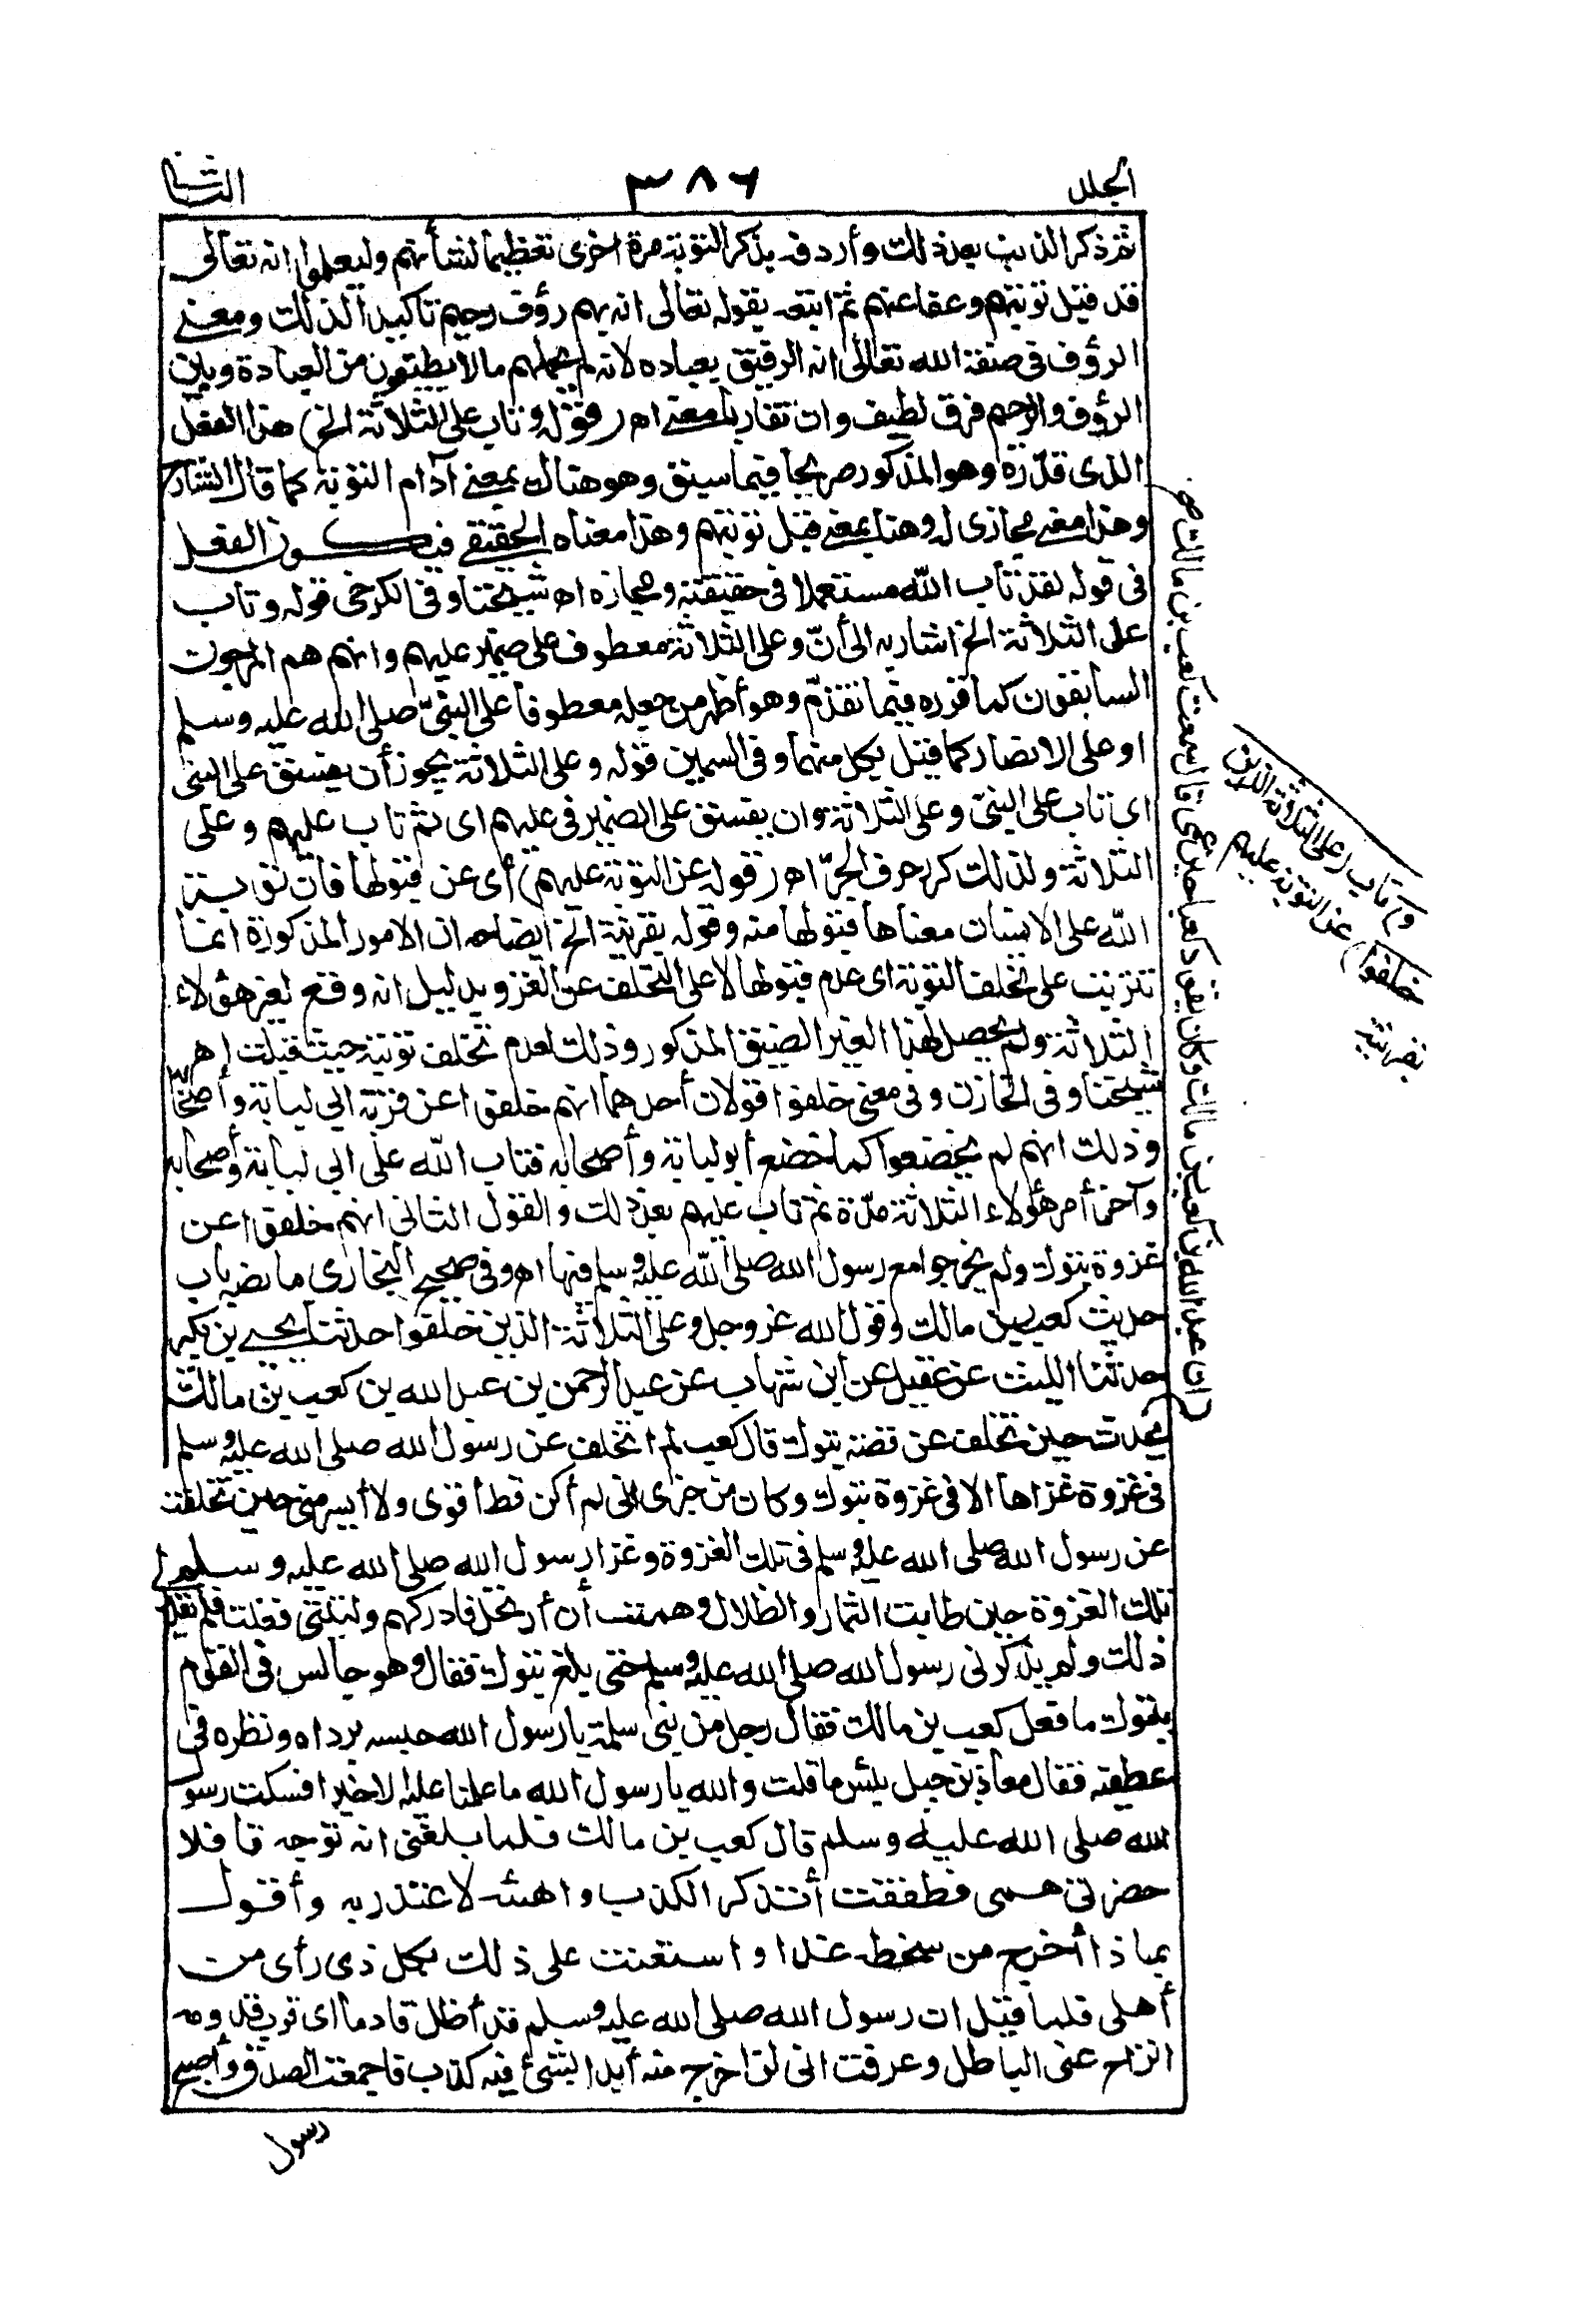 الجلد
٣٨٦
الثا
ثم ذكر الذنب بعد ذلك وأردفه بذكر التوبة مرة اخرى تعظيما لشأنهم وليعلموا انه تعالى
قد قبل توبتهم وعفا عنهم ثم اتبعه بقوله تعالى انه بهم رؤف رحيم تأكيدا لذلك ومعنى
الرؤف في صفة الله تعالى انه الرفيق بعباده لانه لم يحملهم مالا يطيقون من العبادة وبين
الرؤف والرحيم فرق لطيف وان تقاربا معنى اه (قوله وتاب على الثلاثة الخ) هذا الفعل
الذى قدّره وهو المذكور صريحا فيما سبق وهو هناك بمعنى أدام التوبة كما قال الشارح
وهذا معنى مجازى له وهنا بمعنى قبل توبتهم وهذا معناه الحقيقى فيكون الفعل
فى قوله لقد تاب الله مستعملا فى حقيقته ومجازه اه شيخنا وفى الكرخى قوله وتاب
على الثلاثة الخ اشار به الى أنّ وعلى الثلاثة معطوف على ضمير عليهم وانهم هم المرجون
السابقون كما قرره فيما تقدّم وهو أظهر من جعله معطوفا على النبىّ صلى الله عليه وسلم
او على الانصار كما قيل بكل منهما وفى السمين قوله وعلى الثلاثة يجوز أن ينسق على النبى
اى تاب على النبى وعلى الثلاثة وان ينسق على الضمير فى عليهم اى ثم تاب عليهم وعلى
الثلاثة ولذلك كرر حرف الجرّ اه (قوله عن التوبة عليهم) أى عن قبولها فان توبة
الله على الانسان معناها قبولها منه وقوله بقرينة الخ ايضاحه ان الامور المذكورة انما
تترتبت على تخلف التوبة اى عدم قبولها لا على التخلف عن الغزو بدليل انه وقع لغير هؤلاء
الثلاثة ولم يحصل لهذا الغير الضيق المذكور وذلك لعدم تخلف توبته حيث قبلت اهـ
شيخنا وفى الخازن وفى معنى خلفوا قولان أحدهما انهم خلفوا عن توبة ابى لبابة وأصحابه
وذلك انهم لم يخضعوا كما خضع أبو لبابة وأصحابه فتاب الله على ابى لبابة وأصحابه
وآخر أمر هؤلاء الثلاثة مدّة ثم تاب عليهم بعد ذلك والقول الثانى انهم خلفوا عن
غزوة تبوك ولم يخرجوا مع رسول الله صلى الله عليه وسلم فيها اه وفى صحيح البخارى ما نصه باب
حديث كعب بن مالك وقول الله عز وجل وعلى الثلاثة الذين خلفوا حدثنا يحيى بن بكير
حدثنا الليث عن عقيل عن ابن شهاب عن عبد الرحمن بن عبد الله بن كعب بن مالك
يحدث حين تخلف عن قصة تبوك قال كعب لم اتخلف عن رسول الله صلى الله عليه وسلم
فى غزوة غزاها الا فى غزوة تبوك وكان من خبرى انى لم أكن قط أقوى ولا أيسر منى حين تخلفت
عن رسول الله صلى الله عليه وسلم فى تلك الغزوة وغزا رسول الله صلى الله عليه وسلم
تلك الغزوة حين طابت الثمار والظلال وهممت أن أرتحل فادركهم وليتنى فعلت فلم يقدر
ذلك ولم يذكرنى رسول الله صلى الله عليه وسلم حتى بلغ تبوك فقال وهو جالس فى القوم
بتبوك ما فعل كعب بن مالك فقال رجل من بنى سلمة يا رسول الله حبسه برداه ونظره فى
عطفيه فقال معاذ بن جبل بئس ما قلت والله يا رسول الله ما علمنا عليه الا خيرا فسكت رسول
الله صلى الله عليه وسلم قال كعب بن مالك فلما بلغنى انه توجه قافلا
حضرنى همى فطفقت أتذكر الكذب واهيئه لاعتذر به وأقول
بماذا أخرج من سخطه غدا واستعنت على ذلك بكل ذى رأى من
أهلى فلما قيل ان رسول الله صلى الله عليه وسلم قد أظل قادما اى قرب قدومه
انزاح عنى الباطل وعرفت انى لن اخرج منه أبدا بشئ فيه كذب فاجمعت الصدق وأصبح
رسول
(ان عبد الله بن كعب بن مالك وكان يقود كعبا حين عمى قال سمعت كعب بن مالك صح
و(تاب (على الثلاثة الذين
خلفوا) عن التوبة عليهم
بقرينة